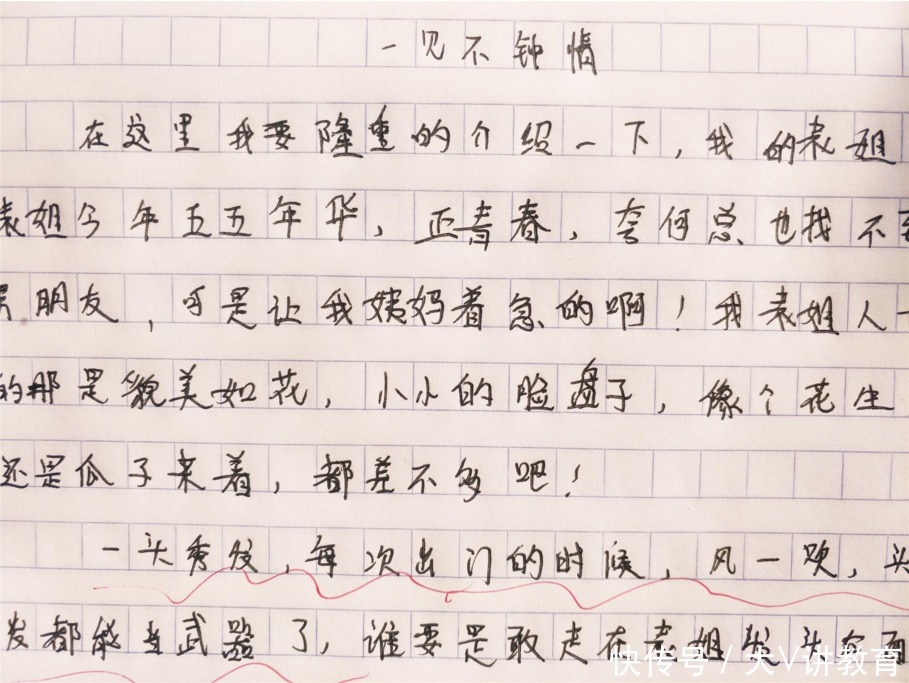 一见不钟情
在这里我要隆重的介绍一下，我的表姐
表姐今年五五年华，正青春，何总也找不
朋友，可是让我姨妈着急的啊！我表姐人
的那是貌美如花，小小的脸盘子，像个花生
还是瓜子来着，都差不多吧！
一头秀发，每次出门的时候，风一吹，头
发都能当武器了，谁要是敢走在表姐
快传号 / 大V讲教育